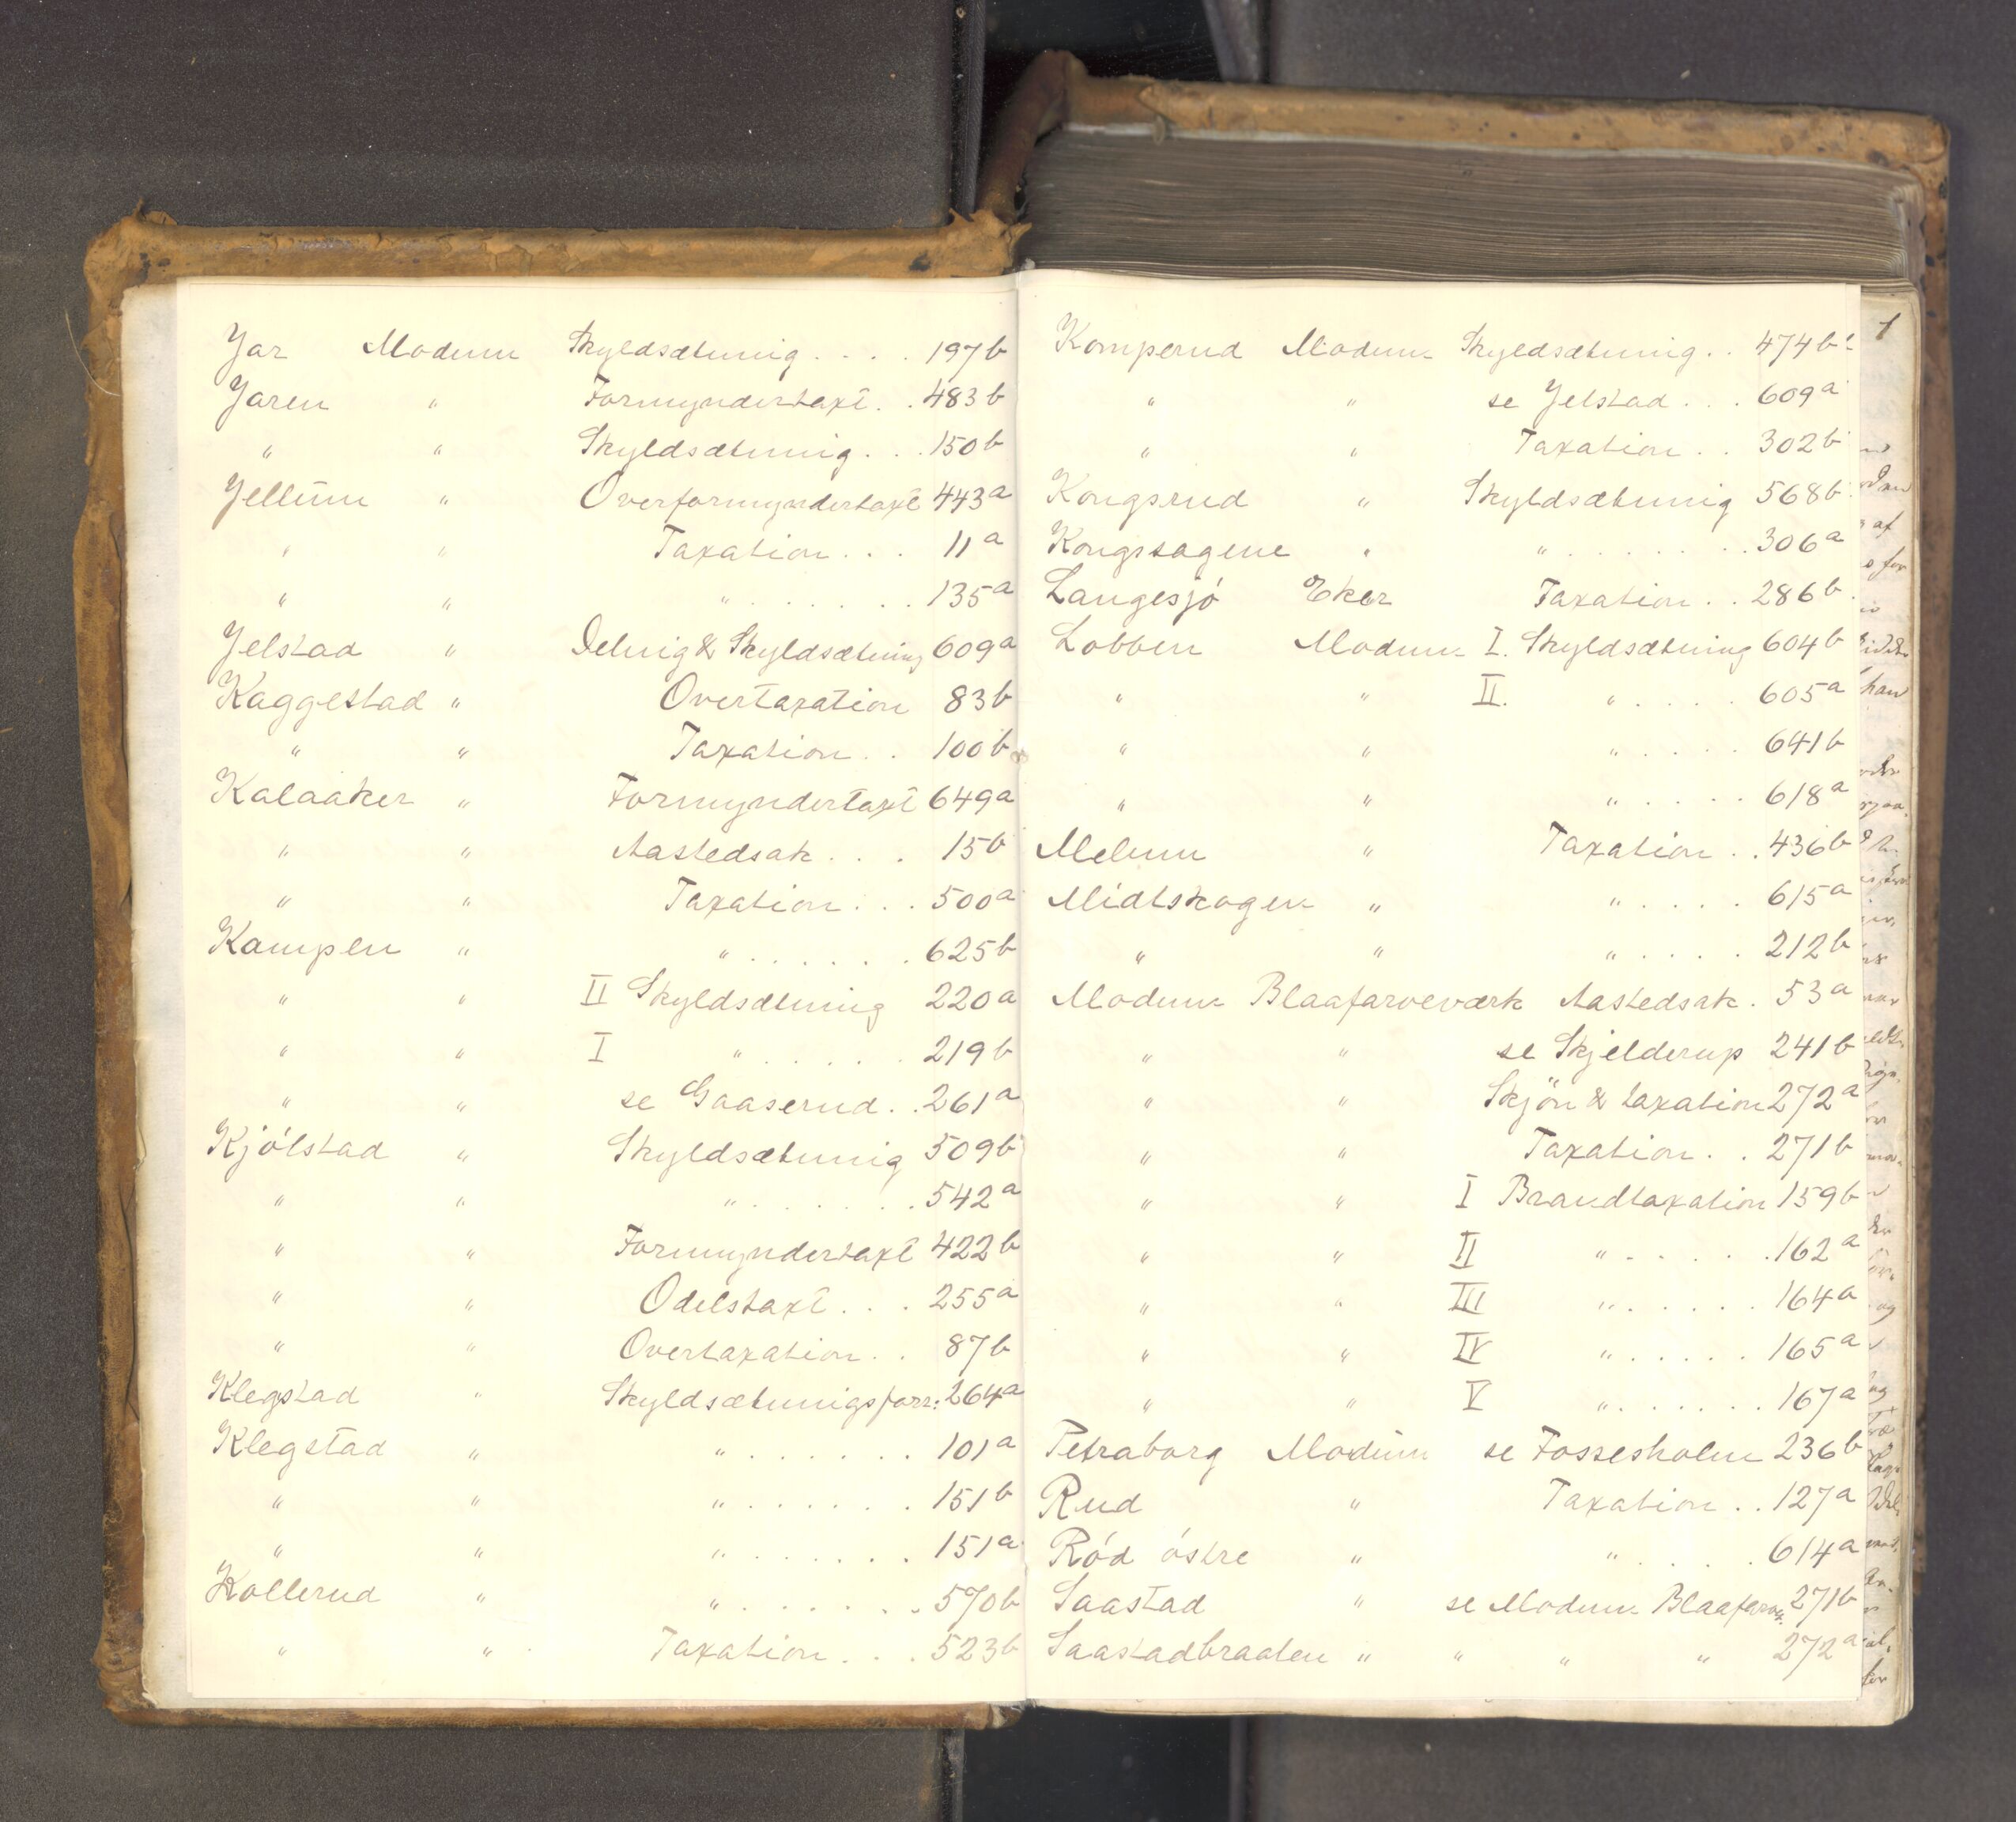 Jar Modum Skyldsætning . . . . 197 b
Jaren " Formyndertaxt . . 483 b
" " Skyldsætning . . . 150 b
Jellum " Overformyndertaxt 443 a
" " Taxation . . . 11 a
" " " . . . . . . . 135 a
Jelstad " Deling & Skyldsætning 609 a
Kaggestad " Overtaxation 83 b
" " Taxation . . 100 b
Kalaaker " Formyndertaxt 649 a
" " Aastedsak . . . 15 b
" " Taxation . . . 500 a
Kampen " " . . . . . . . 625 b
" " II Skyldsætning 220 a
" " I " . . . . . . 219 b
" " se Gaaserud . . 261 a
Kjólstad " Skyldsætning 509 b
" " " . . . . . . . 542 a
" " Formyndertaxt 422 b
" " Odelstaxt . . . 255 a
" " Overtaxation . . 87 b
Klegstad " Skyldsætningsforr: 264 a
Klegstad " " . . . . . . . 101 a
" " " . . . . . . . 151 b
" " " . . . . . . . 151 a
Kollerud " " . . . . . . . 570 b
" " Taxation . . . 523 b
Komperud Modum Skyldsætning . . 474 b
" " se Jelstad . . . 609 a
" " Taxation . . 302 b
Kongsrud " Skyldsætning 568 b
Kongssagene " " . . . . . . . . 306 a
Langesjó Eker Taxation . . 286 b
Lobben Modum I. Skyldsætning 604 b
" " II. " . . . . . 605 a
" " " . . . . . 641 b
" " " . . . . . 618 a
Melum " Taxation . . 436 b
Midtskogen " " . . . . . 615 a
" " " . . . . . 212 b
Modum Blaafarveværk Aastedsak . 53 a
" " se Skjelderup 241 b
" " Skjön & taxation 272 a
" " Taxation . . 271 b
" " I Brandtaxation 159 b
" " II " . . . . . . 162 a
" " III " . . . . . . 164 a
" " IV " . . . . . . 165 a
" " V " . . . . . . 167 a
Petraborg Modum se Fossesholm 236 b
Rud " Taxation . . 127 a
Ród óstre " " . . . . . 614 a
Saastad " se Modum Blaafarv. 271 b
Saastadbraaten " " " " 272 a
1